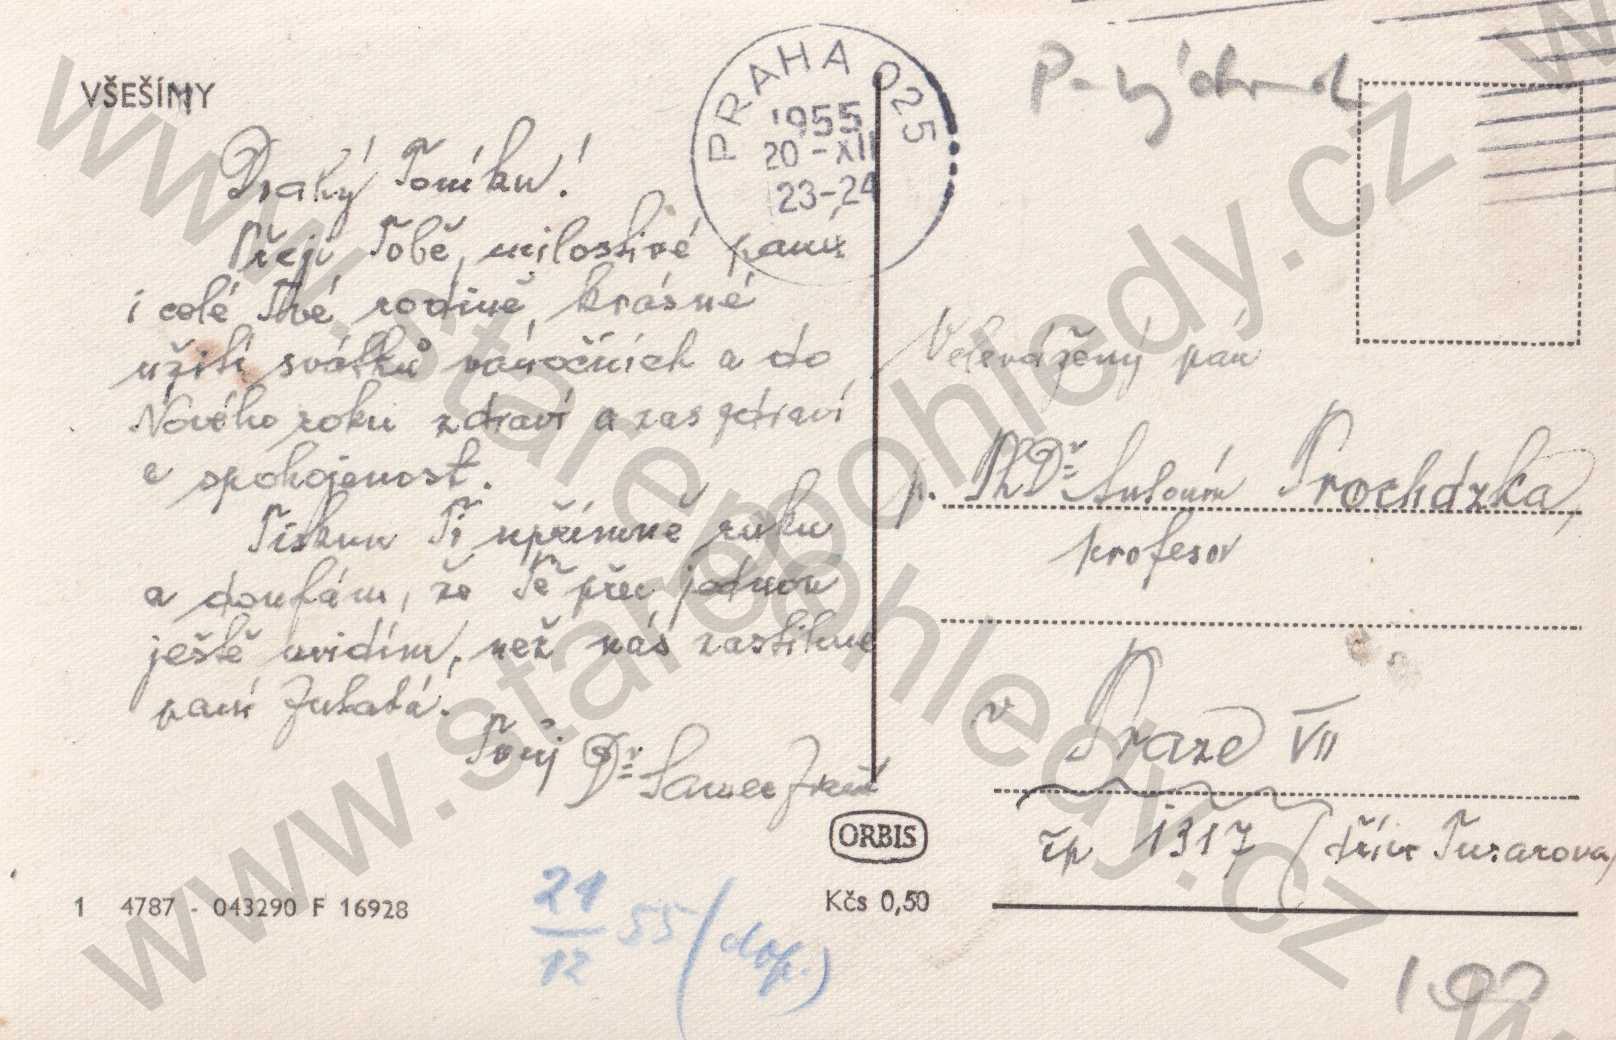 VŠEŠÍMY
PRAHA 025
1955
20-XII
23-24
Drahý Toníku!
Přeji Tobě, milostivé paní
i celé Tvé rodině, krásné
užití svátků vánočních a do
Nového roku zdraví a zas zdraví
a spokojenost.
Tisknu Ti upřímně ruku
a doufám, že Tě přec jednou
ještě uvidím, než nás zastihne
paní Zubatá!
Tvůj Dr
Velevážený pán
p. PhDr Antonín Procházka,
profesor
v Praze VII
čp 1317 (dřív Tusarova)
ORBIS
Kčs 0,50
1 4787 - 043290 F 16928
21/12 55 (dop.)
www.starepohledy.cz
www.starepohledy.cz